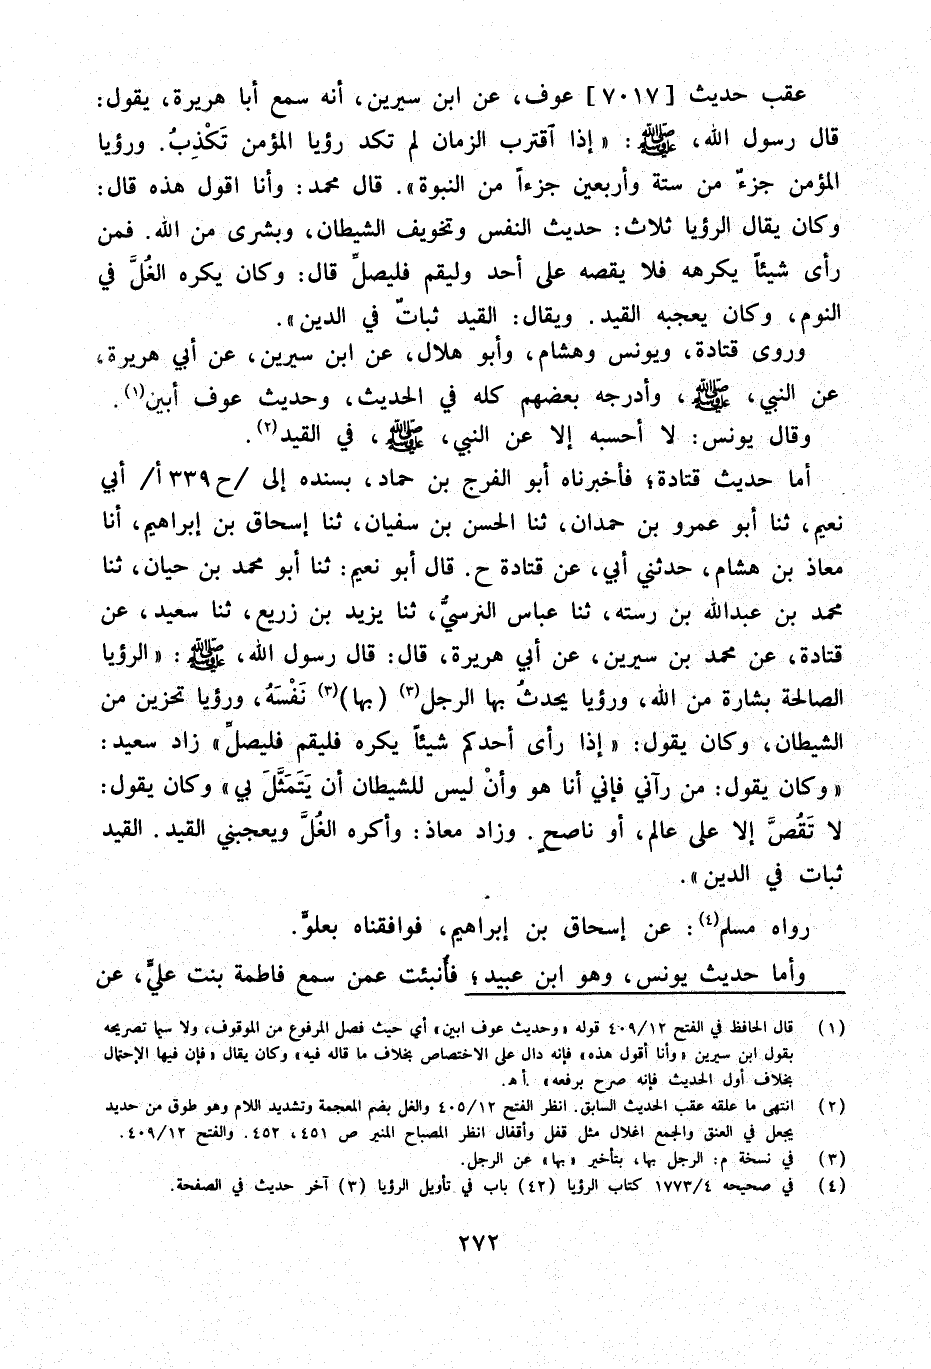 عقب حديث [٧٠١٧] عوف، عن ابن سيرين، أنه سمع أبا هريرة، يقول:
قال رسول الله، ﷺ: «إذا آقترب الزمان لم تكد رؤيا المؤمن تَكْذِبُ. ورؤيا
المؤمن جزءٌ من ستة وأربعين جزءاً من النبوة». قال محمد: وأنا اقول هذه قال:
وكان يقال الرؤيا ثلاث: حديث النفس وتخويف الشيطان، وبشرى من الله. فمن
رأى شيئاً يكرهه فلا يقصه على أحد وليقم فليصلِّ قال: وكان يكره الغُلَّ في
النوم، وكان يعجبه القيد. ويقال: القيد ثباتٌ في الدين».
وروى قتادة، ويونس وهشام، وأبو هلال، عن ابن سيرين، عن أبي هريرة،
عن النبي، ﷺ، وأدرجه بعضهم كله في الحديث، وحديث عوف أبين(١).
وقال يونس: لا أحسبه إلا عن النبي، ﷺ، في القيد(٢).
أما حديث قتادة؛ فأخبرناه أبو الفرج بن حماد، بسنده إلى /ح٣٣٩أ/ أبي
نعيم، ثنا أبو عمرو بن حمدان، ثنا الحسن بن سفيان، ثنا إسحاق بن إبراهيم، أنا
معاذ بن هشام، حدثني أبي، عن قتادة ح. قال أبو نعيم: ثنا أبو محمد بن حيان، ثنا
محمد بن عبدالله بن رسته، ثنا عباس النرسيُّ، ثنا يزيد بن زريع، ثنا سعيد، عن
قتادة، عن محمد بن سيرين، عن أبي هريرة، قال: قال رسول الله، ﷺ: «الرؤيا
الصالحة بشارة من الله، ورؤيا يحدثُ بها الرجل(٣) (بها)(٣) نَفْسَهُ، ورؤيا تحزين من
الشيطان، وكان يقول: «إذا رأى أحدكم شيئاً يكره فليقم فليصلِّ» زاد سعيد:
«وكان يقول: من رآني فإني أنا هو وأنْ ليس للشيطان أن يَتَمَثَّلَ بي» وكان يقول:
لا تَقُصَّ إلا على عالم، أو ناصحٍ. وزاد معاذ: وأكره الغُلَّ ويعجبني القيد. القيد
ثبات في الدين».
رواه مسلم(٤): عن إسحاق بن إبراهيم، فوافقناه بعلوٍّ.
وأما حديث يونس، وهو ابن عبيد؛ فأُنبئت عمن سمع فاطمة بنت عليٍّ، عن
(١) قال الحافظ في الفتح ٤٠٩/١٢ قوله «وحديث عوف ابين» أي حيث فصل المرفوع من الموقوف، ولا سيما تصريحه
بقول ابن سيرين «وأنا أقول هذه» فإنه دال على الاختصاص بخلاف ما قاله فيه» وكان يقال «فإن فيها الإحتمال
بخلاف أول الحديث فإنه صرح برفعه» .أ هـ.
(٢) انتهى ما علقه عقب الحديث السابق. انظر الفتح ٤٠٥/١٢ والغل بضم المعجمة وتشديد اللام وهو طوق من حديد
يجعل في العنق والجمع اغلال مثل قفل وأقفال انظر المصباح المنير ص ٤٥١، ٤٥٢. والفتح ٤٠٩/١٢.
(٣) في نسخة م: الرجل بها، بتأخير «بها» عن الرجل.
(٤) في صحيحه ١٧٧٣/٤ كتاب الرؤيا (٤٢) باب في تأويل الرؤيا (٣) آخر حديث في الصفحة.
٢٧٢